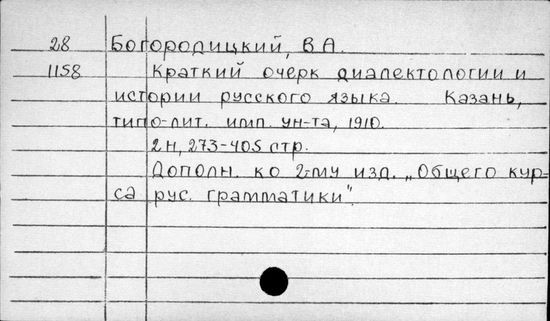 28 Богородицкий, В.А.
1158 Краткий очерк диалектологии и
истории русского языка. Казань,
типо-лит. имп. ун-та, 1910.
2н, 273-405 стр.
Дополн. ко 2-му изд. „Общего кур-
са рус. грамматики".